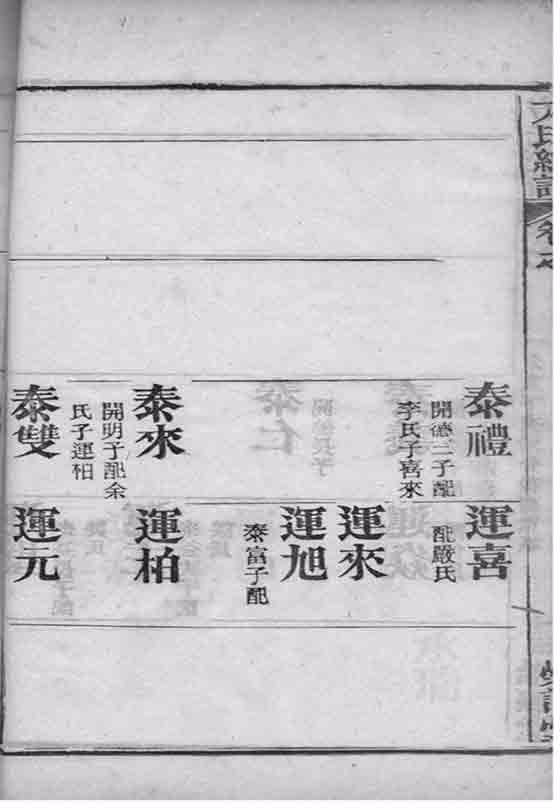 泰禮
開德二子配
李氏子喜來
泰來
開明子配余
氏子運柏
泰雙
運喜
配嚴氏
運來
運旭
泰富子配
運柏
運元